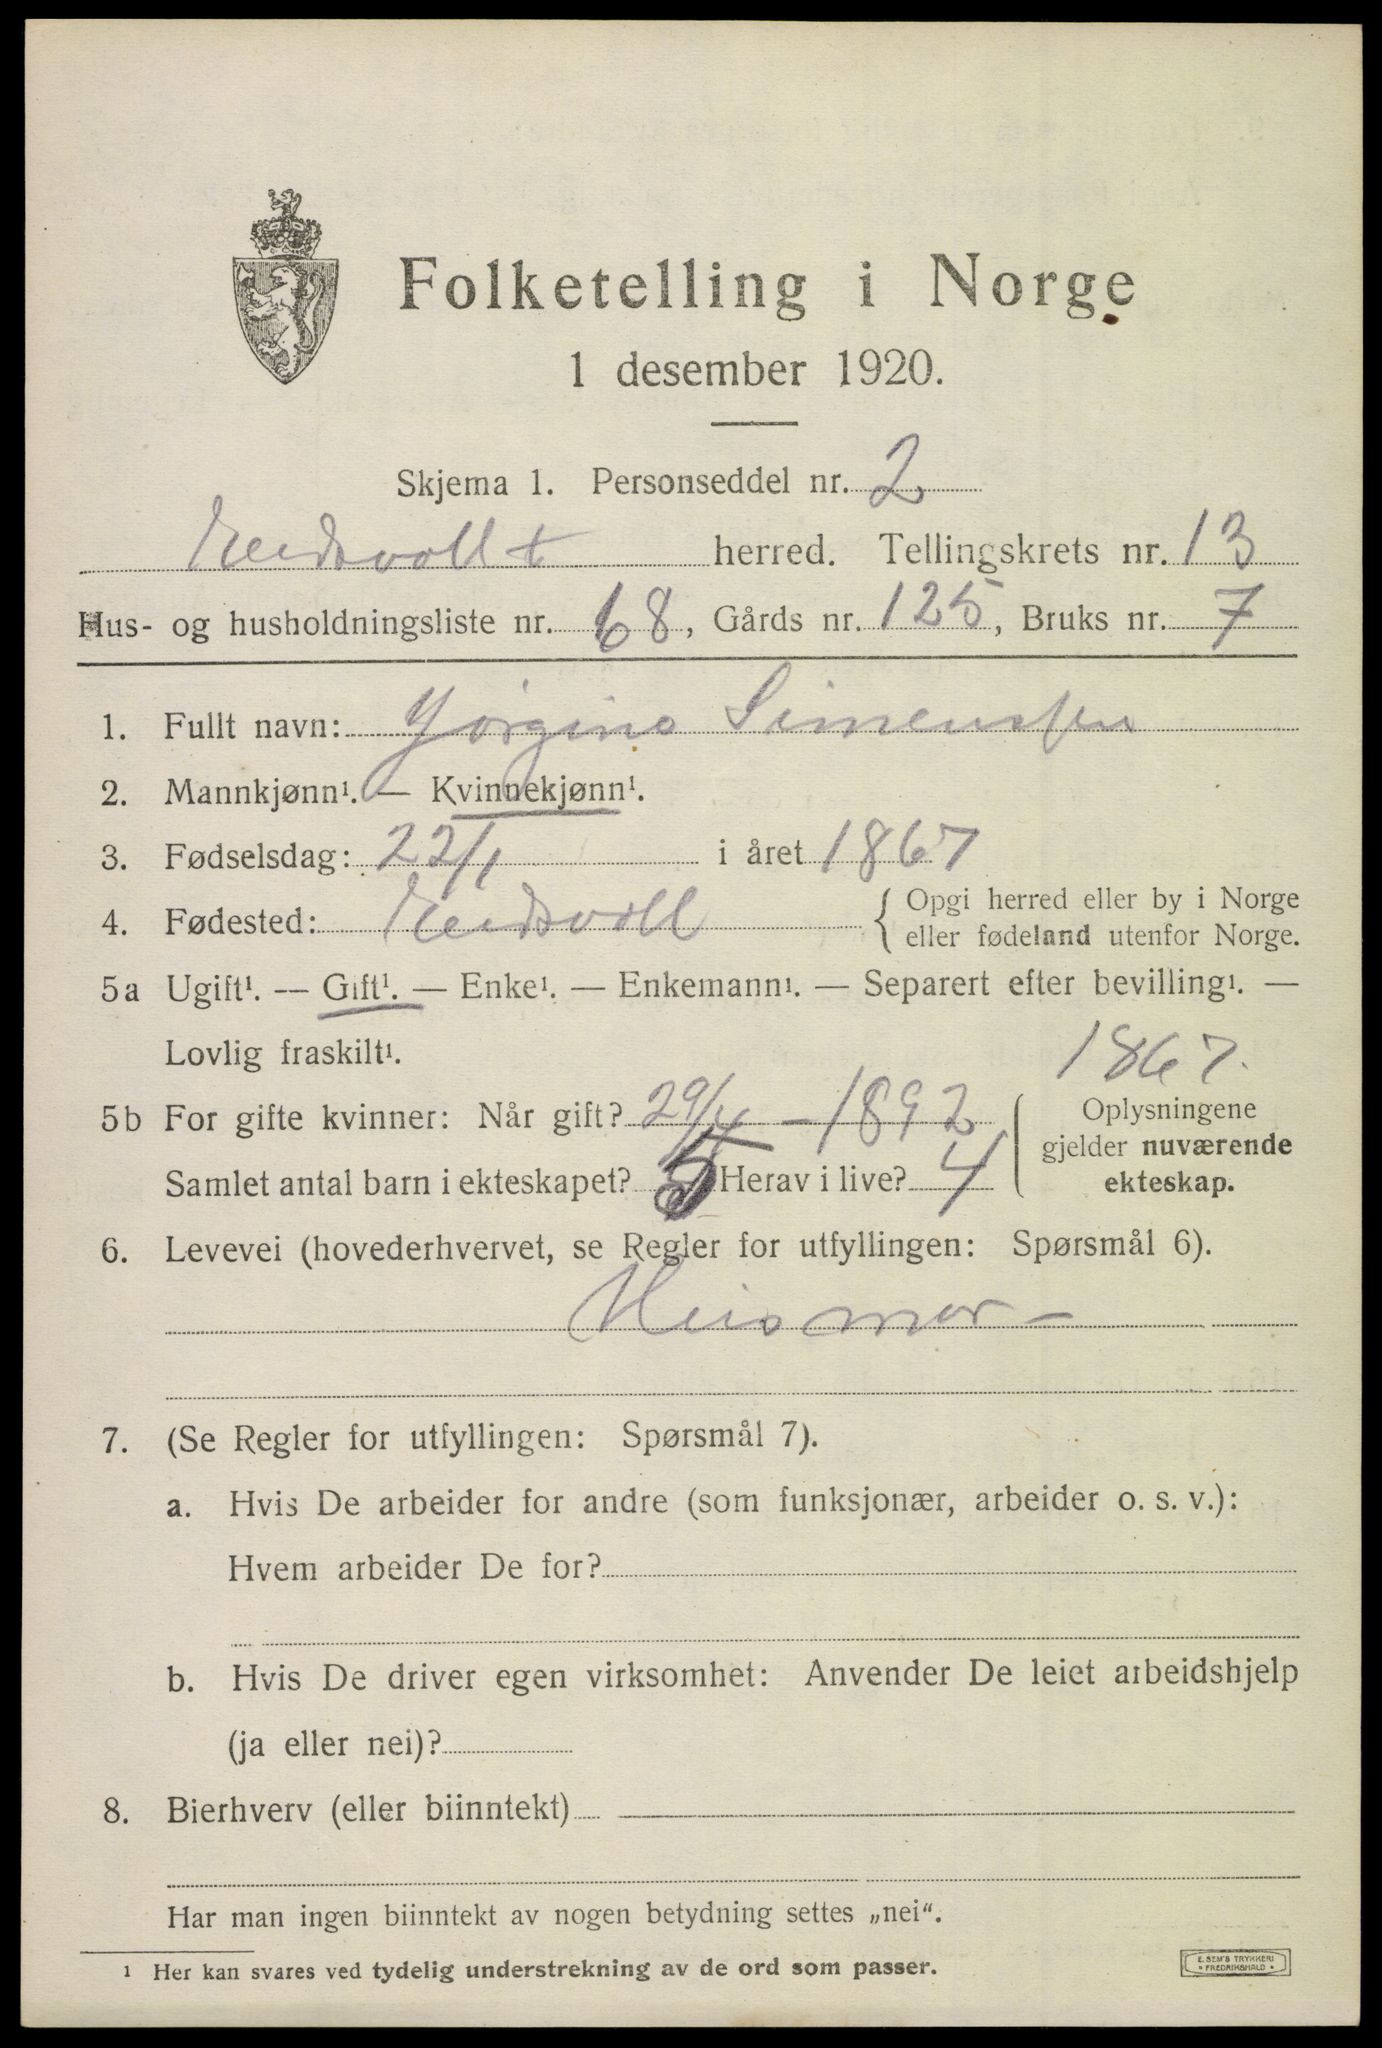 Folketelling i Norge
1 desember 1920.
Skjema 1. Personseddel nr. 2
Eidsvoll herred. Tellingskrets nr. 13
Hus- og husholdningsliste nr. 68, Gårds nr. 125, Bruks nr. 7
1. Fullt navn: Jørgine Simensen
2. Mannkjønn¹. — Kvinnekjønn¹.
3. Fødselsdag: 22/1 i året 1867
4. Fødested: Eidsvoll { Opgi herred eller by i Norge
eller fødeland utenfor Norge.
5a Ugift¹. — Gift¹. — Enke¹. — Enkemann¹. — Separert efter bevilling¹. —
Lovlig fraskilt¹.
1867.
5b For gifte kvinner: Når gift? 29/4 - 1892
Samlet antal barn i ekteskapet? 5 Herav i live? 4
{ Oplysningene
gjelder nuværende
ekteskap.
6. Levevei (hovederhvervet, se Regler for utfyllingen: Spørsmål 6).
Husmor -
7. (Se Regler for utfyllingen: Spørsmål 7).
a. Hvis De arbeider for andre (som funksjonær, arbeider o. s. v.):
Hvem arbeider De for?
b. Hvis De driver egen virksomhet: Anvender De leiet arbeidshjelp
(ja eller nei)?
8. Bierhverv (eller biinntekt)
Har man ingen biinntekt av nogen betydning settes „nei“.
¹ Her kan svares ved tydelig understrekning av de ord som passer.
E. SEM'S TRYKKERI
* FREDRIKSHALD *